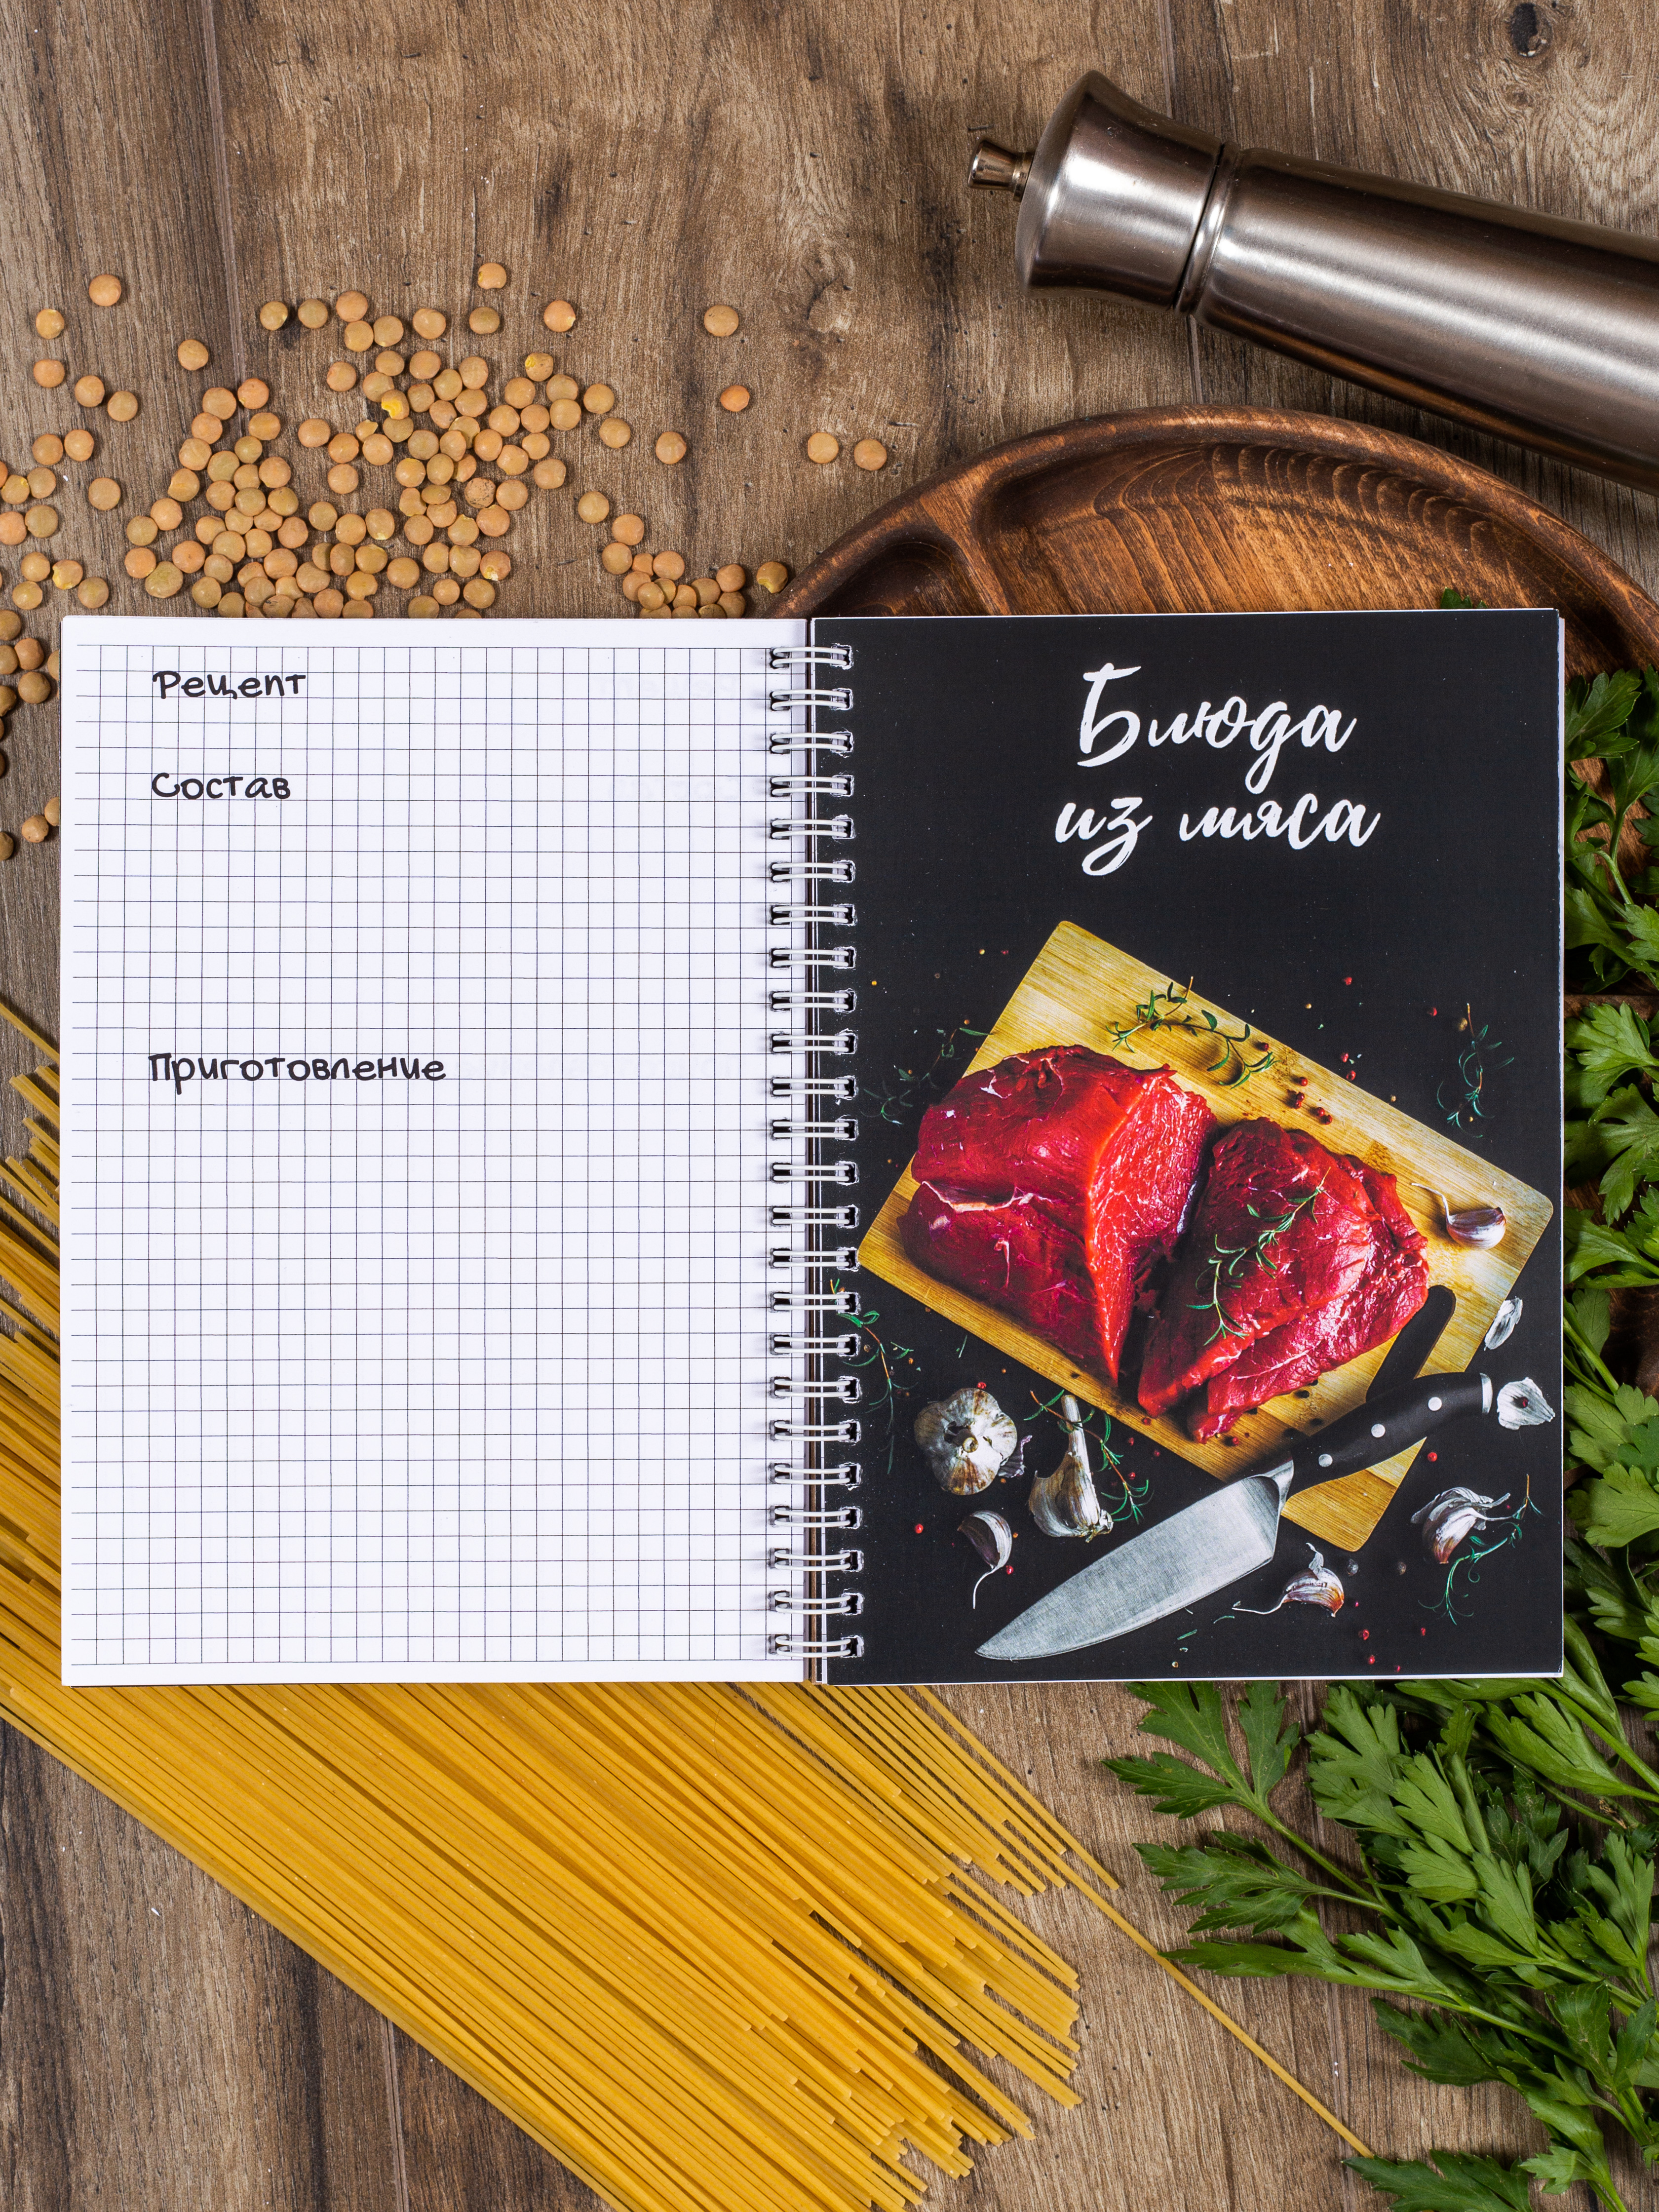 Рецепт
Состав
Приготовление
Блюда
из мяса